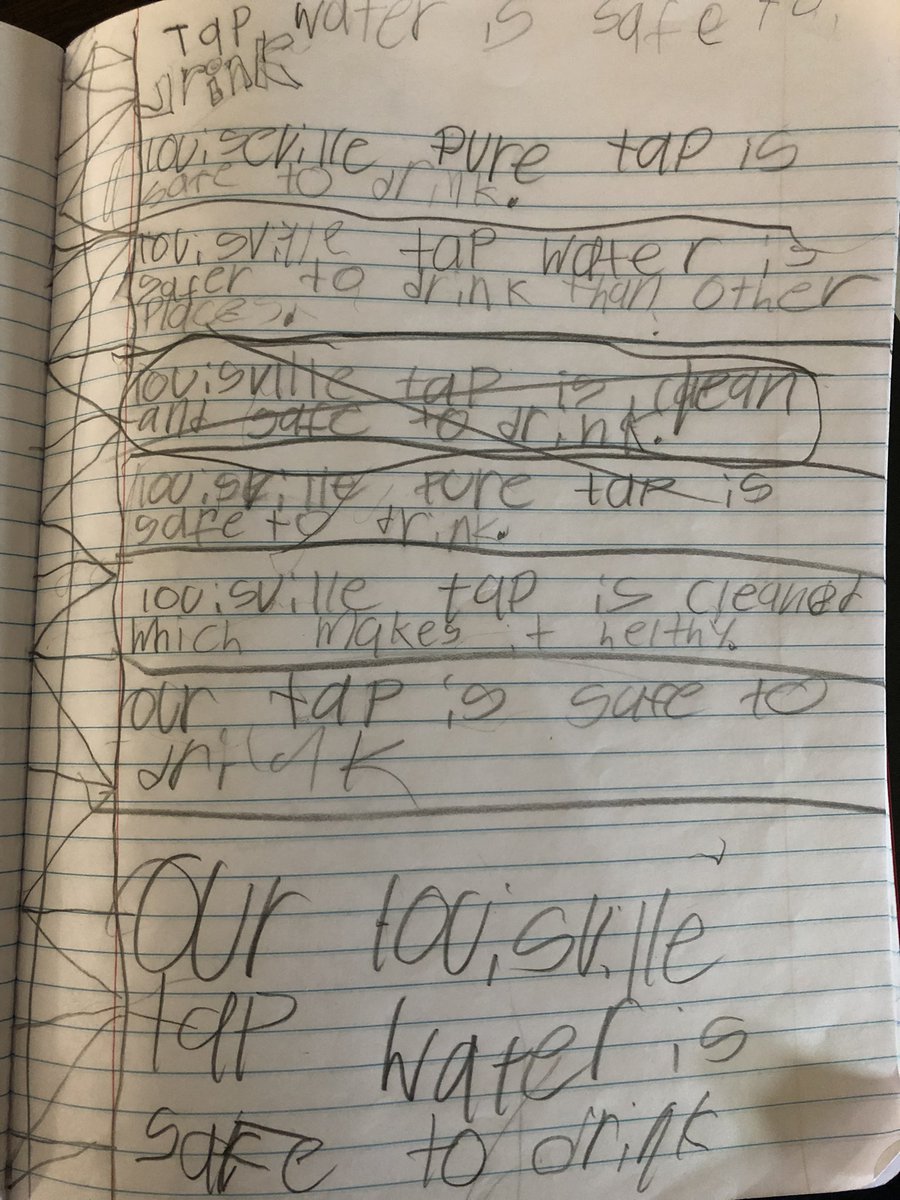 Tap water is safe to
drink
louiseville pure tap is
safe to drink.
louisville tap water is
safer to drink than other
places.
louisville tap is clean
and safe to drink.
louisville pure tap is
safe to drink.
louisville tap is cleaned
which makes it helthy.
our tap is safe to
drink
Our louisville
tap water is
safe to drink